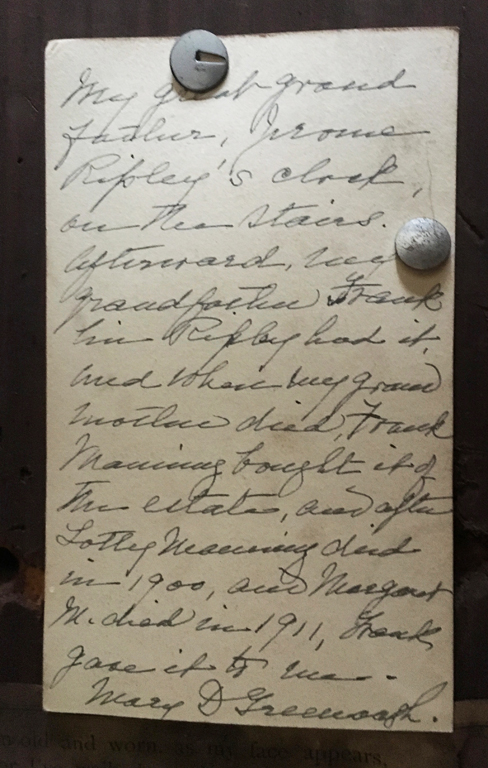 My great grand
father, Jerome
Ripley's clock,
on the stairs.
Afterward, my
grandfather Frank
lin Ripley had it,
and when my grand
mother died, Frank
Manning bought it of
the estate, and after
Lotty Manning died
in 1900, and Margaret
M. died in 1911, Frank
gave it to me -
Mary D Greenough.
old and worn, as my face appears,